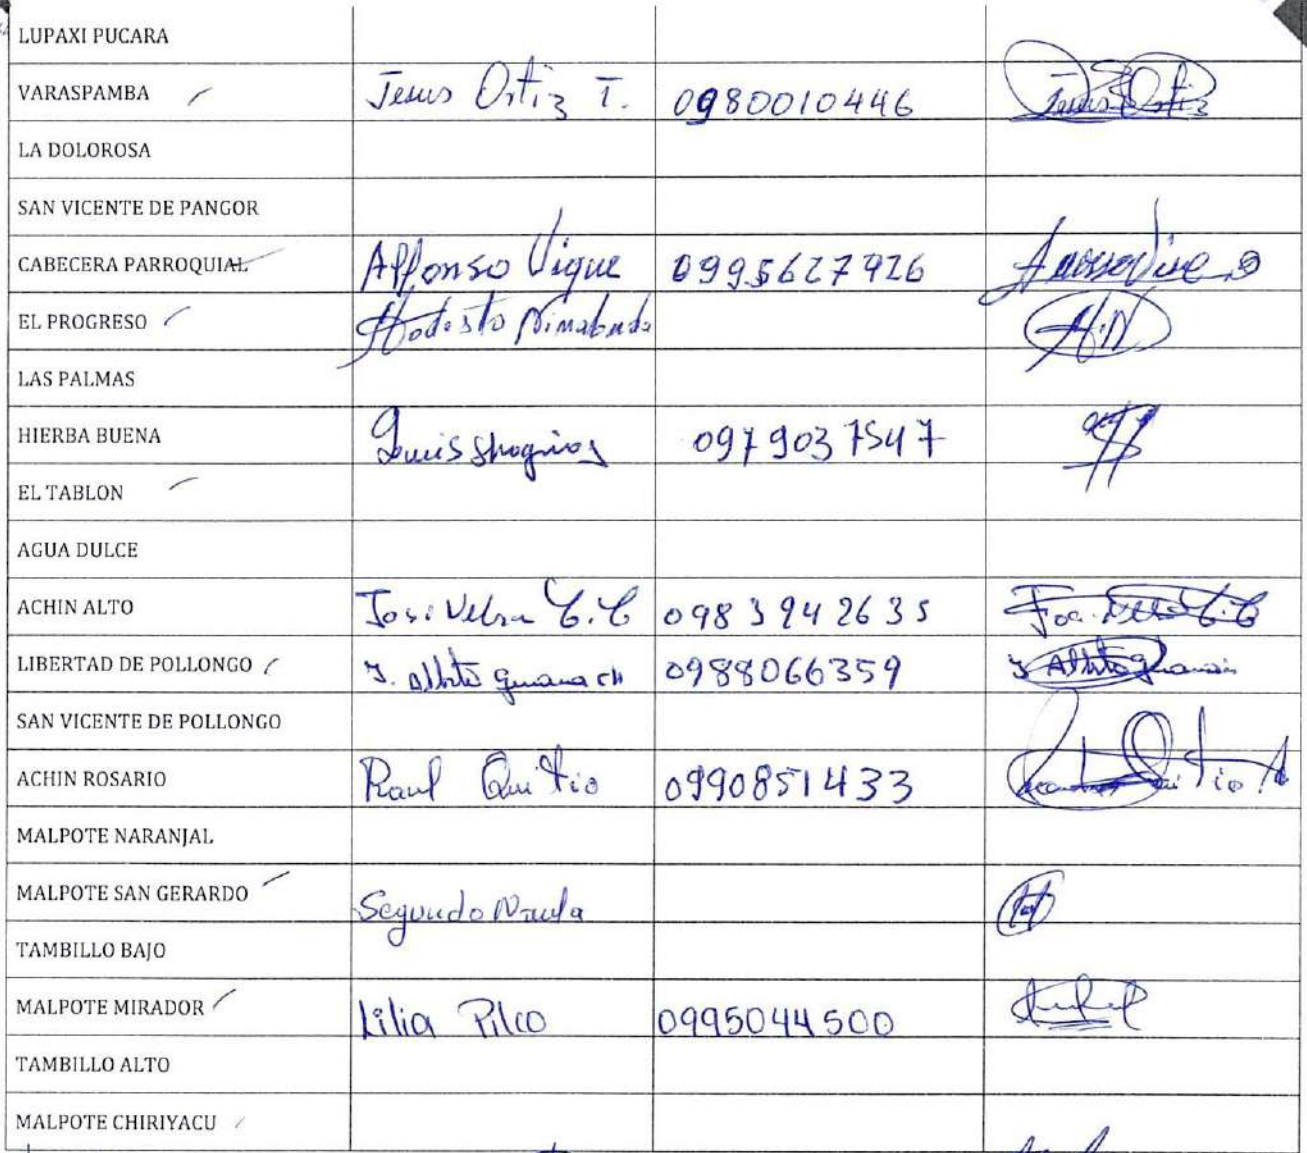 LUPAXI PUCARA
VARASPAMBA Jesus Ortiz T. 0980010446 Jesus Ortiz
LA DOLOROSA
SAN VICENTE DE PANGOR
CABECERA PARROQUIAL Alfonso Vique 0995627926
EL PROGRESO Modesto
LAS PALMAS
HIERBA BUENA Luis 0979037547
EL TABLON
AGUA DULCE
ACHIN ALTO 0983942635
LIBERTAD DE POLLONGO J. 0988066359
SAN VICENTE DE POLLONGO
ACHIN ROSARIO Raul Quitio 0990851433
MALPOTE NARANJAL
MALPOTE SAN GERARDO Segundo Naula
TAMBILLO BAJO
MALPOTE MIRADOR Lilia Pilco 0995044500
TAMBILLO ALTO
MALPOTE CHIRIYACU